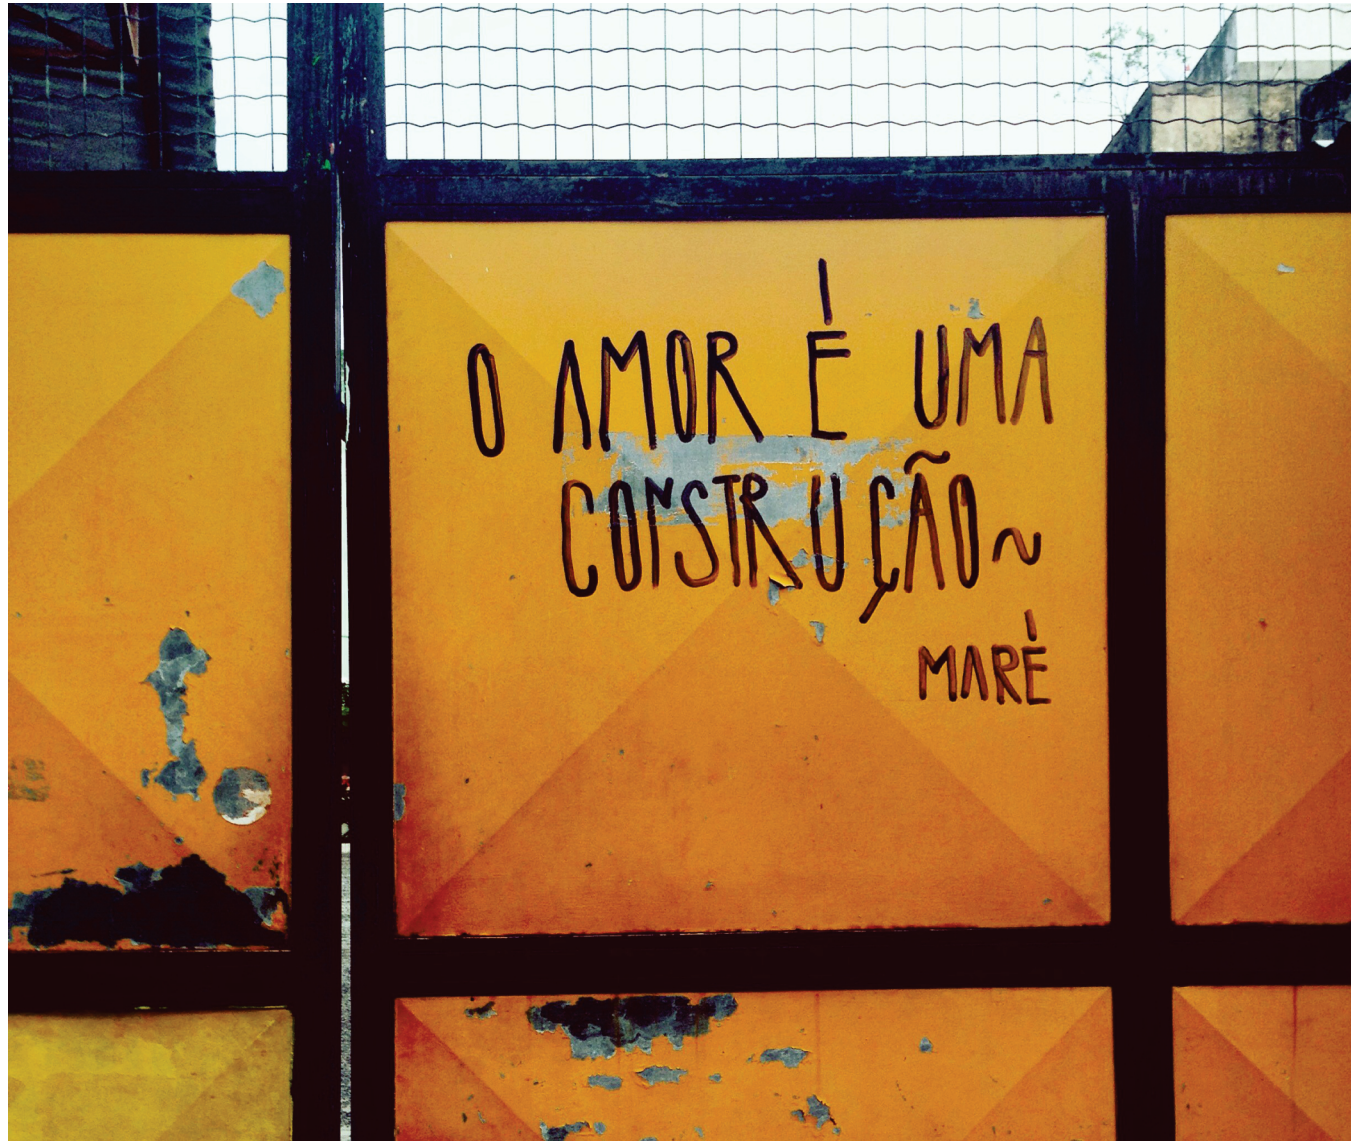 O AMOR É UMA
CONSTRUÇÃO~
MARÉ